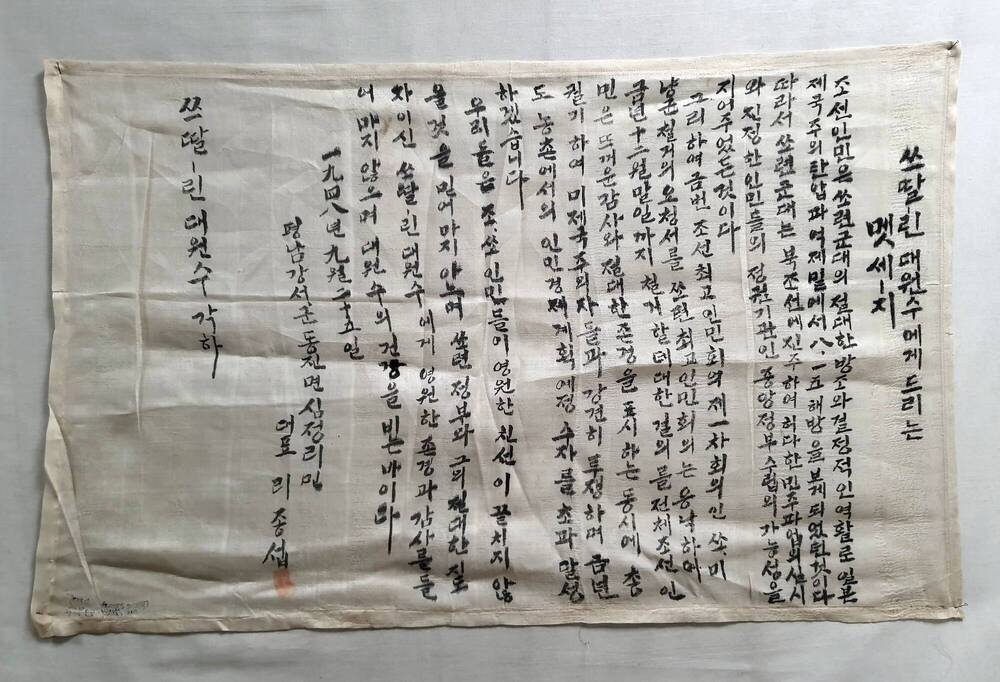 쓰딸린 대원수에게 드리는
멧세-지
조선인민은 쏘련군대의 절대한 방조와 결정적인 역활로 일본
제국주의 탄압과 억제밑에서 八.一五해방을 보게되였든것이다
따라서 쏘련군대는 북조선에 진주하여 허다한 민주과업의 실시
와 진정한 인민들의 정권기관인 중앙정부수립의 가능성을
지어주었든것이다
그리하여 금번 조선최고인민회의 제一차회의인 쏘.미
양군철거의 요청서를 쏘련최고인민회의는 응낙하여
금년十二월말일까지 철거할데대한 결의를 전체조선 인
민은 뜨거운감사와 절대한존경을 표시하는동시에 총
궐기하여 미제국주의자들과 강견히 투쟁하며 금년
도 농촌에서의 인민경제계획예정 수자를 초과 달성
하겠습니다
우리들은 조.쏘인민들이 영원한 친선이 끝치지 않
을것을 믿어 마지아느며 쏘련정부와 그의 위대한 지도
자이신 쓰딸린대원수에게 영원한 존경과 감사를들
어 마지않으며 대원수의 건강을 비는바이다
一九四八년 九월 二五일
평남강서군동진면심정리민
대표 리종섭
쓰딸-린 대원수 각하